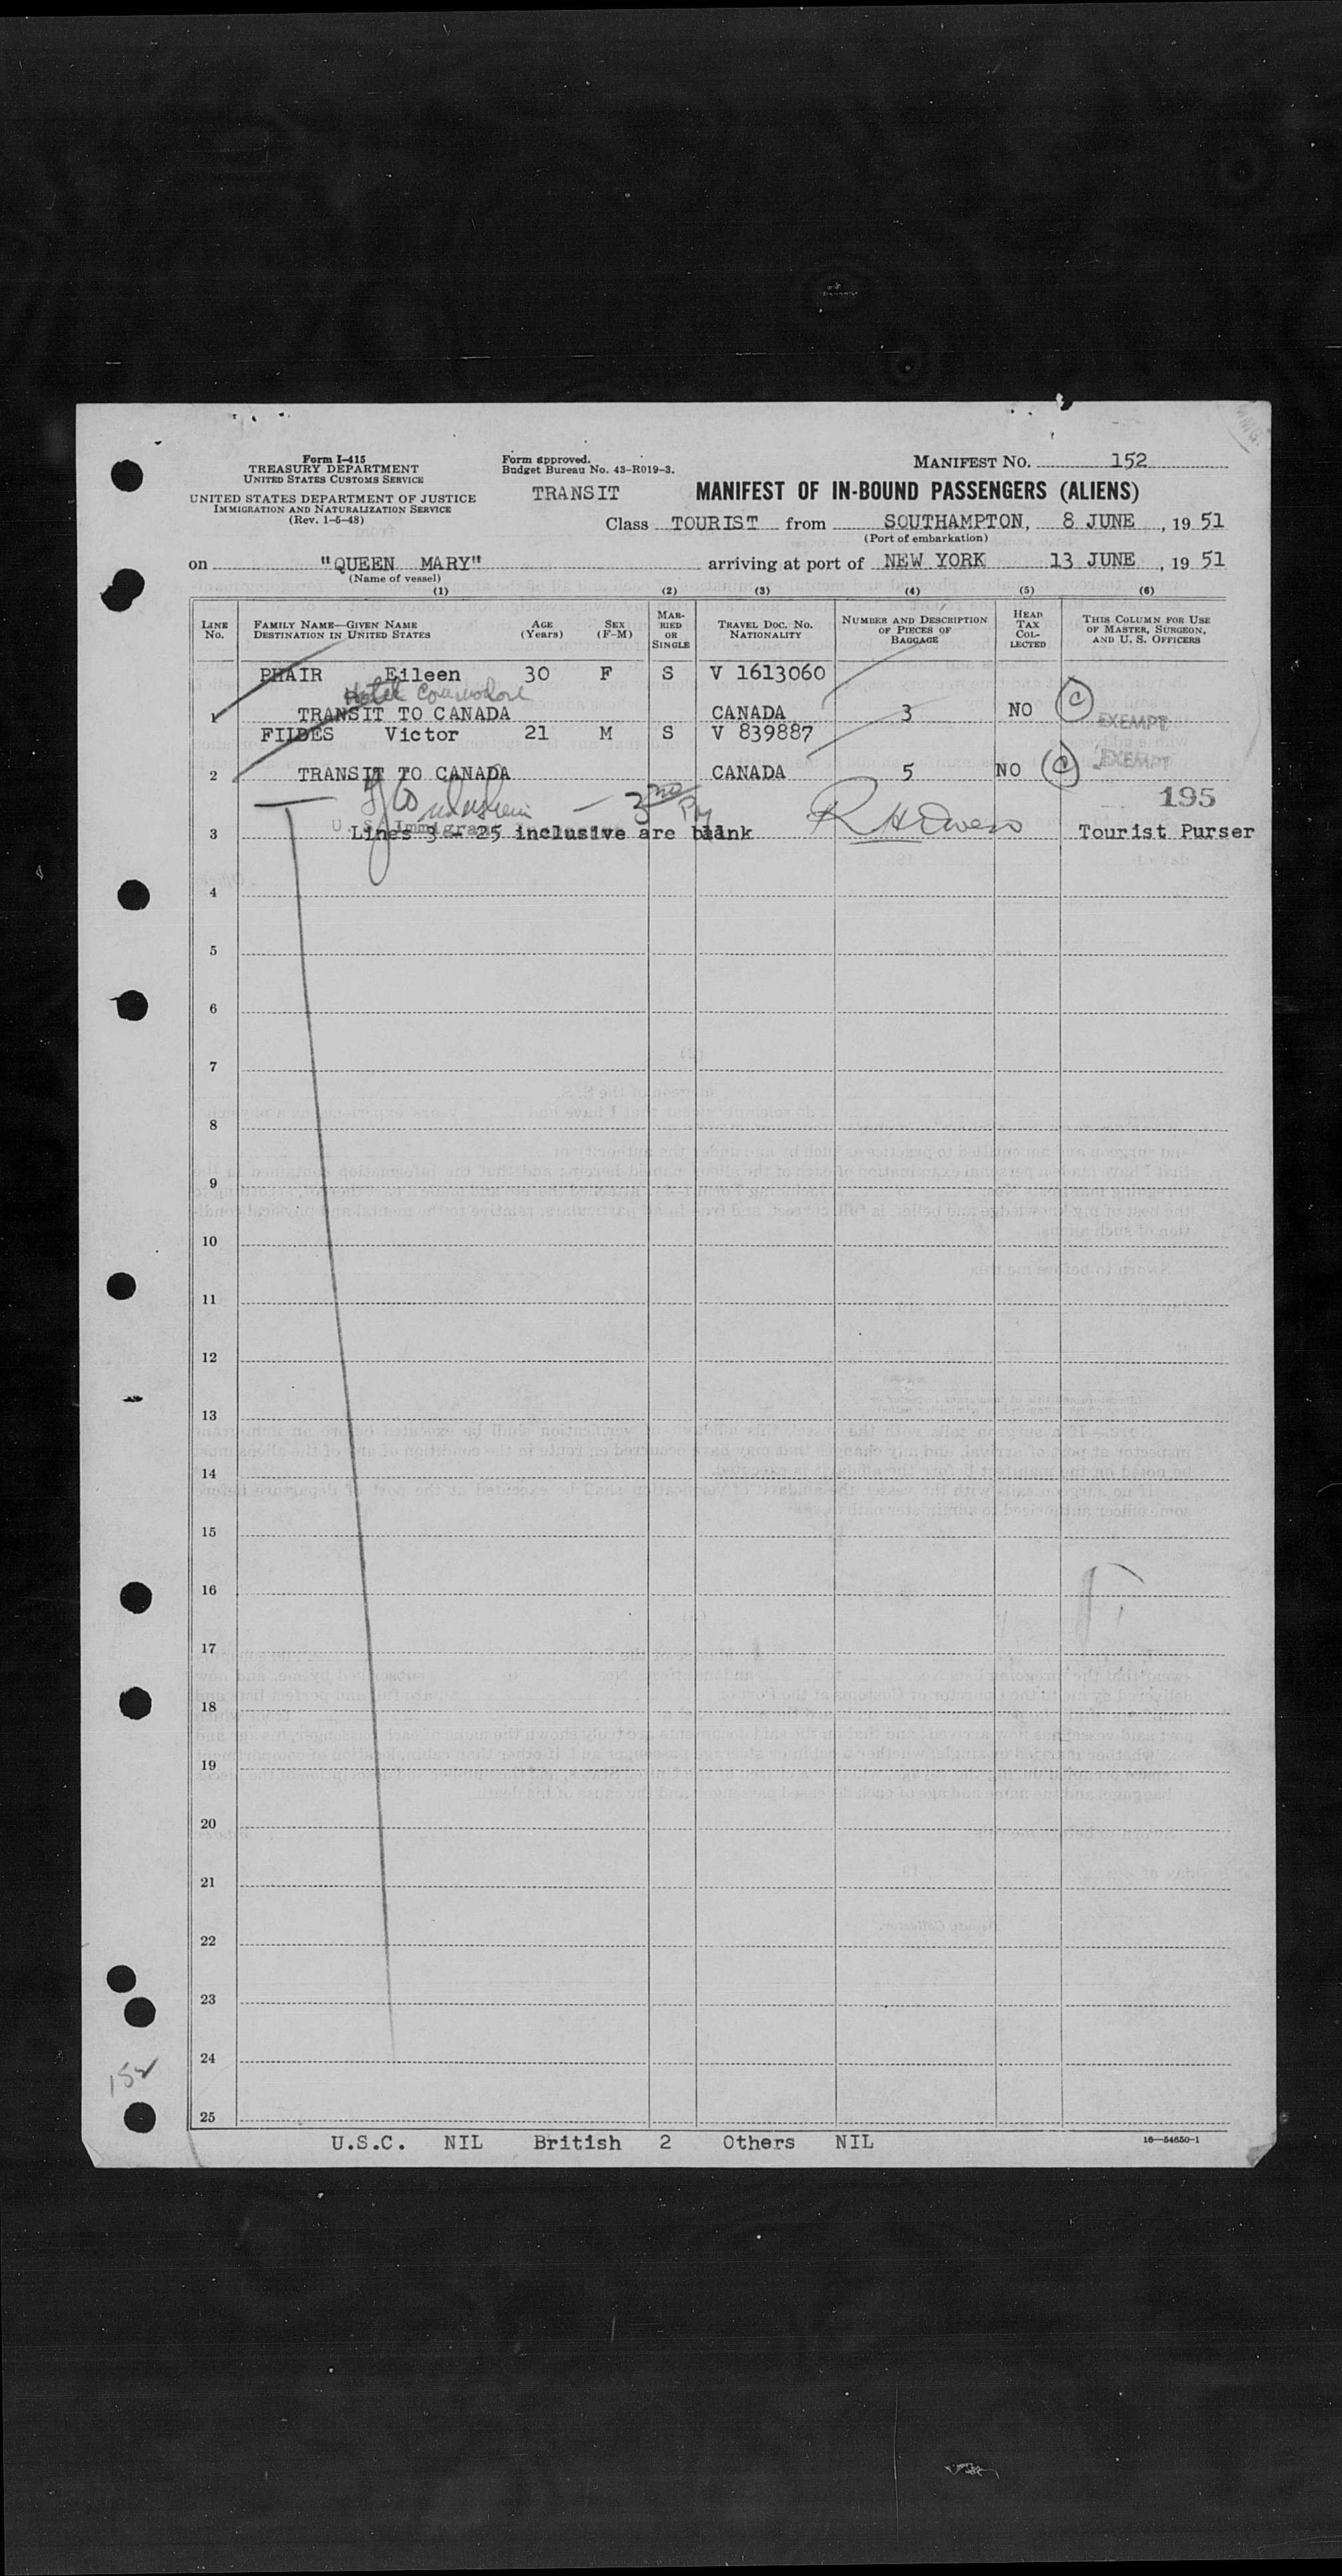 Form I-415
TREASURY DEPARTMENT
UNITED STATES CUSTOMS SERVICE
UNITED STATES DEPARTMENT OF JUSTICE
IMMIGRATION AND NATURALIZATION SERVICE
(Rev. 1-5-48)
Form approved.
Budget Bureau No. 43-R019-3.
MANIFEST NO. 152
TRANSIT MANIFEST OF IN-BOUND PASSENGERS (ALIENS)
Class TOURIST from SOUTHAMPTON, 8 JUNE, 19 51
(Port of embarkation)
on "QUEEN MARY" arriving at port of NEW YORK 13 JUNE, 19 51
(Name of vessel)
(1) (2) (3) (4) (5) (6)
LINE No. FAMILY NAME—GIVEN NAME DESTINATION IN UNITED STATES AGE (Years) SEX (F-M) MARRIED OR SINGLE TRAVEL DOC. NO. NATIONALITY NUMBER AND DESCRIPTION OF PIECES OF BAGGAGE HEAD TAX COLLECTED THIS COLUMN FOR USE OF MASTER, SURGEON, AND U. S. OFFICERS
PHAIR Eileen 30 F S V 1613060
Hotel Commodore
1 TRANSIT TO CANADA CANADA 3 NO C EXEMPT
FILDES Victor 21 M S V 839887
2 TRANSIT TO CANADA CANADA 5 NO C EXEMPT
195
3 Lines 3 - 25 inclusive are blank R H Owens Tourist Purser
4
5
6
7
8
9
10
11
12
13
14
15
16
17
18
19
20
21
22
23
24
152
25
U.S.C. NIL British 2 Others NIL
16—54650-1